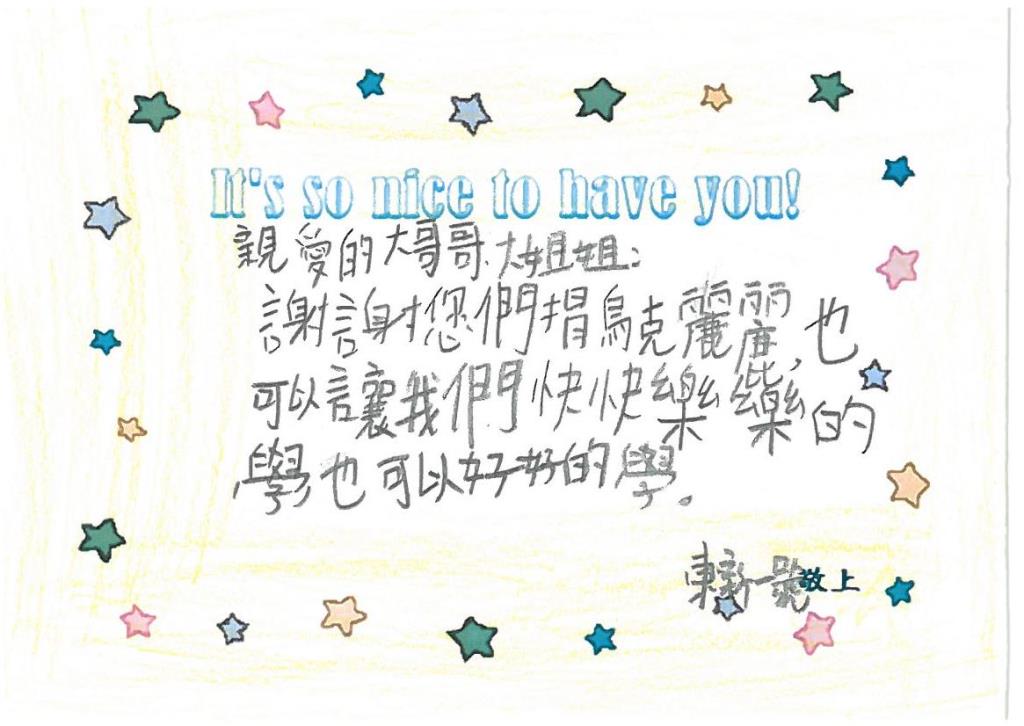 It's so nice to have you!
親愛的大哥哥.大姐姐:
謝謝您們捐烏克麗麗,也
可以讓我們快快樂樂的
學也可以好好的學。
敬上